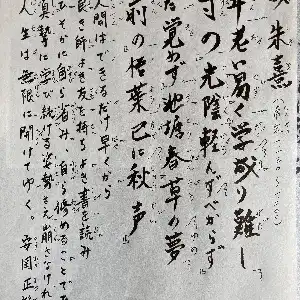 朱熹
年老い易く学成り難し
寸の光陰軽んずべからず
だ覚めず池塘春草の夢
前の梧葉已に秋声
人間はできるだけ早くから
良き師よき友を持ち よき書を読み
ひそかに自ら省み、自ら修めることである
真摯に学び続ける姿勢さえ崩さなければ
人生は無限に開けてゆく。 安岡正